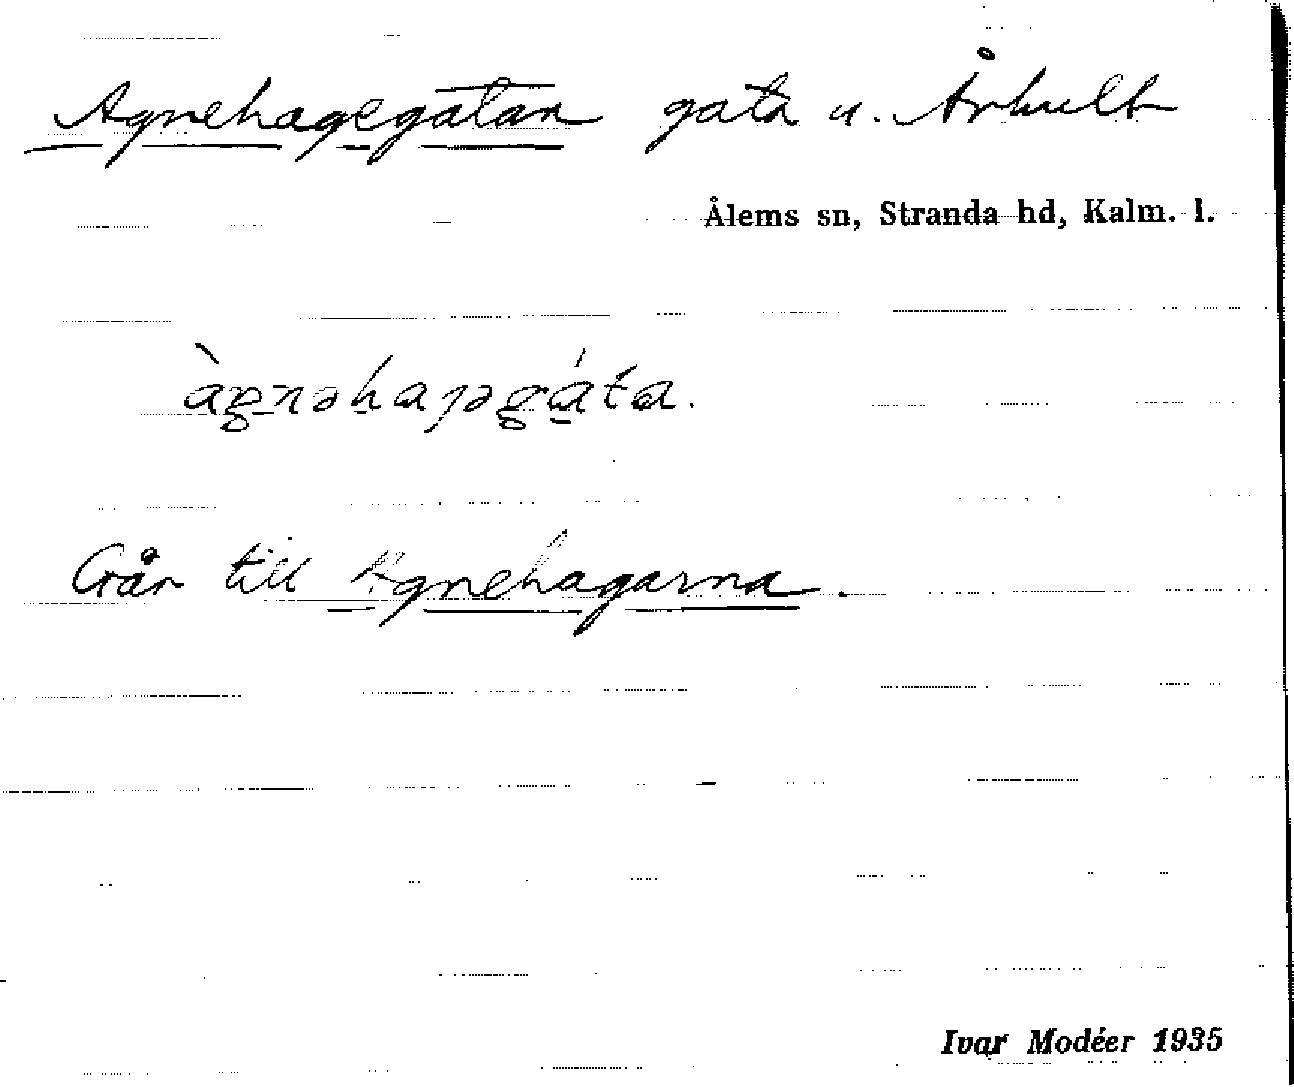 Agnehagegatan gata u. Århult
Ålems sn, Stranda hd, Kalm. l.
Går till Agnehagarna.
Ivar Modéer 1935